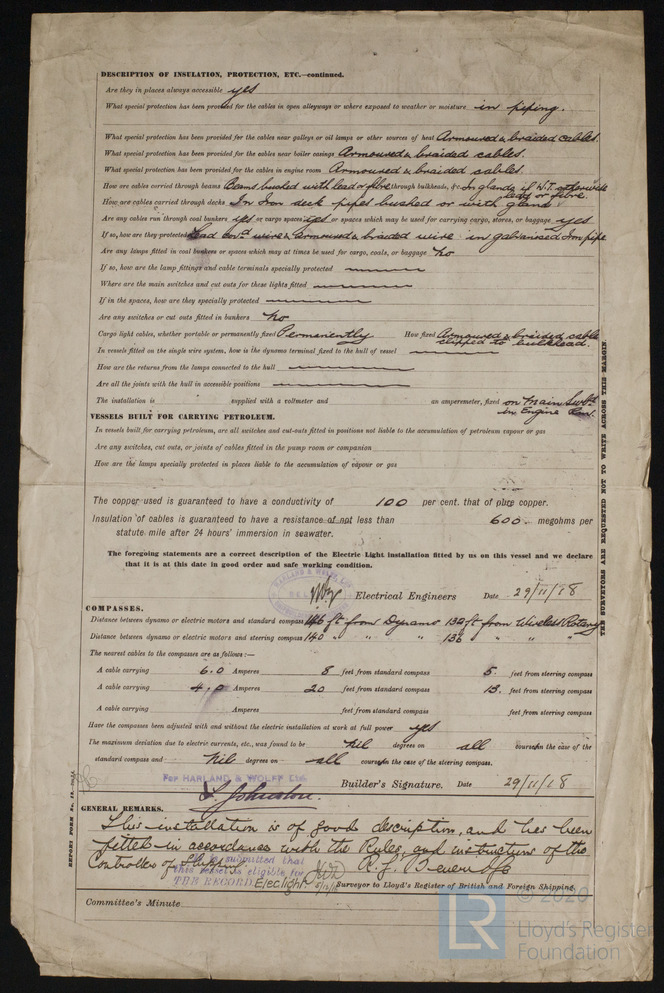 DESCRIPTION OF INSULATION, PROTECTION, ETC.—continued.
Are they in places always accessible yes
What special protection has been provided for the cables in open alleyways or where exposed to weather or moisture in piping.
What special protection has been provided for the cables near galleys or oil lamps or other sources of heat Armoured & braided cables.
What special protection has been provided for the cables near boiler casings Armoured & braided cables.
What special protection has been provided for the cables in engine room Armoured & braided cables.
How are cables carried through beams Beams bushed with lead or fibre through bulkheads, &c. In glands if W.T. otherwise
lead or fibre.
How are cables carried through decks In Iron deck pipes bushed or with glands
Are any cables run through coal bunkers yes or cargo spaces yes or spaces which may be used for carrying cargo, stores, or baggage yes
If so, how are they protected Lead cov.d wire & armoured & braided wire in galvanised Iron pipe
Are any lamps fitted in coal bunkers or spaces which may at times be used for cargo, coals, or baggage No
If so, how are the lamp fittings and cable terminals specially protected
Where are the main switches and cut outs for these lights fitted
If in the spaces, how are they specially protected
Are any switches or cut outs fitted in bunkers No
Cargo light cables, whether portable or permanently fixed Permanently How fixed Armoured & braided cable
clipped to bulkhead.
In vessels fitted on the single wire system, how is the dynamo terminal fixed to the hull of vessel
How are the returns from the lamps connected to the hull
Are all the joints with the hull in accessible positions
The installation is supplied with a voltmeter and an amperemeter, fixed on Main Swbd
in Engine Room.
VESSELS BUILT FOR CARRYING PETROLEUM.
In vessels built for carrying petroleum, are all switches and cut-outs fitted in positions not liable to the accumulation of petroleum vapour or gas
Are any switches, cut outs, or joints of cables fitted in the pump room or companion
How are the lamps specially protected in places liable to the accumulation of vapour or gas
The copper used is guaranteed to have a conductivity of 100 per cent. that of pure copper.
Insulation of cables is guaranteed to have a resistance of not less than 600 megohms per
statute mile after 24 hours' immersion in seawater.
The foregoing statements are a correct description of the Electric Light installation fitted by us on this vessel and we declare
that it is at this date in good order and safe working condition.
HARLAND & WOLFF, LTD.
Electrical Engineers Date 29/11/18
COMPASSES.
Distance between dynamo or electric motors and standard compass 146 ft from Dynamo 132 ft from Wireless Rotary
Distance between dynamo or electric motors and steering compass 140 " " " 136 " " "
The nearest cables to the compasses are as follows:—
A cable carrying 6.0 Amperes 8 feet from standard compass 5. feet from steering compass
A cable carrying 4.0 Amperes 20 feet from standard compass 13. feet from steering compass
A cable carrying Amperes feet from standard compass feet from steering compass
Have the compasses been adjusted with and without the electric installation at work at full power yes
The maximum deviation due to electric currents, etc., was found to be Nil degrees on all courses in the case of the
standard compass and Nil degrees on all courses in the case of the steering compass.
For HARLAND & WOLFF Ltd.
Johnston. Builder's Signature. Date 29/11/18
GENERAL REMARKS.
This installation is of good description, and has been
fitted in accordance with the Rules, and instructions of the
Controller of Shipping.
It is submitted that
this vessel is eligible for
THE RECORD Elec light
Surveyor to Lloyd's Register of British and Foreign Shipping.
Committee's Minute
THE SURVEYORS ARE REQUESTED NOT TO WRITE ACROSS THE MARGIN
© 2020
LR
Lloyd's Register
Foundation